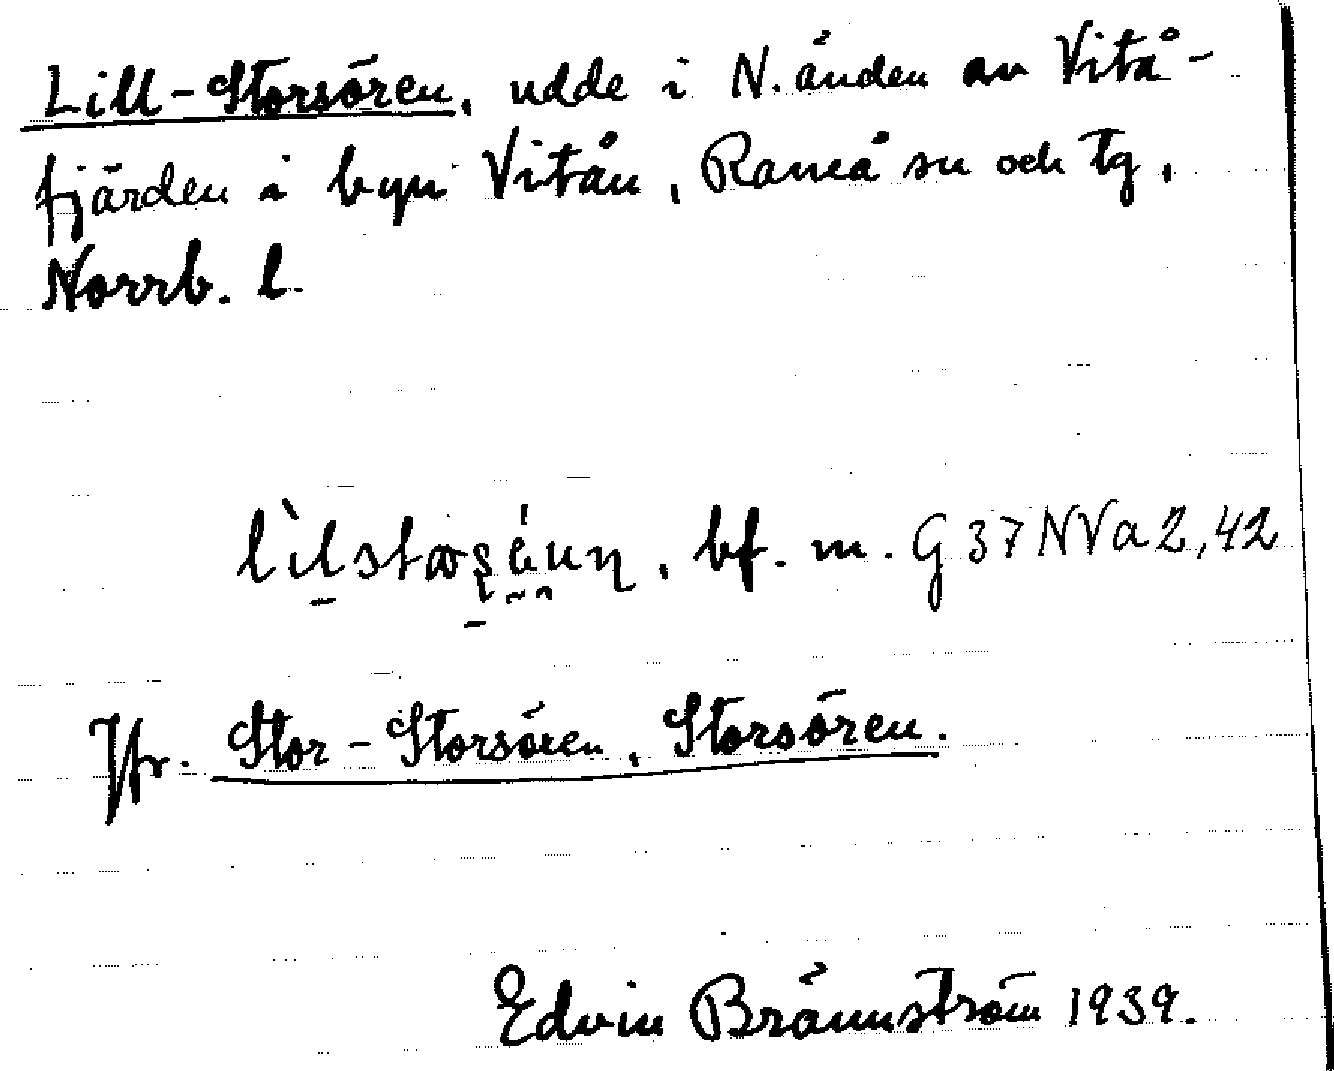 Lill-Storsören, udde i N. änden av Vitå-
fjärden i byn Vitån, Råneå sn och tg,
Norrb. l.
bf. m. G 37 NV a 2, 42
Jfr. Stor-Storsören, Storsören.
Edvin Brännström 1939.